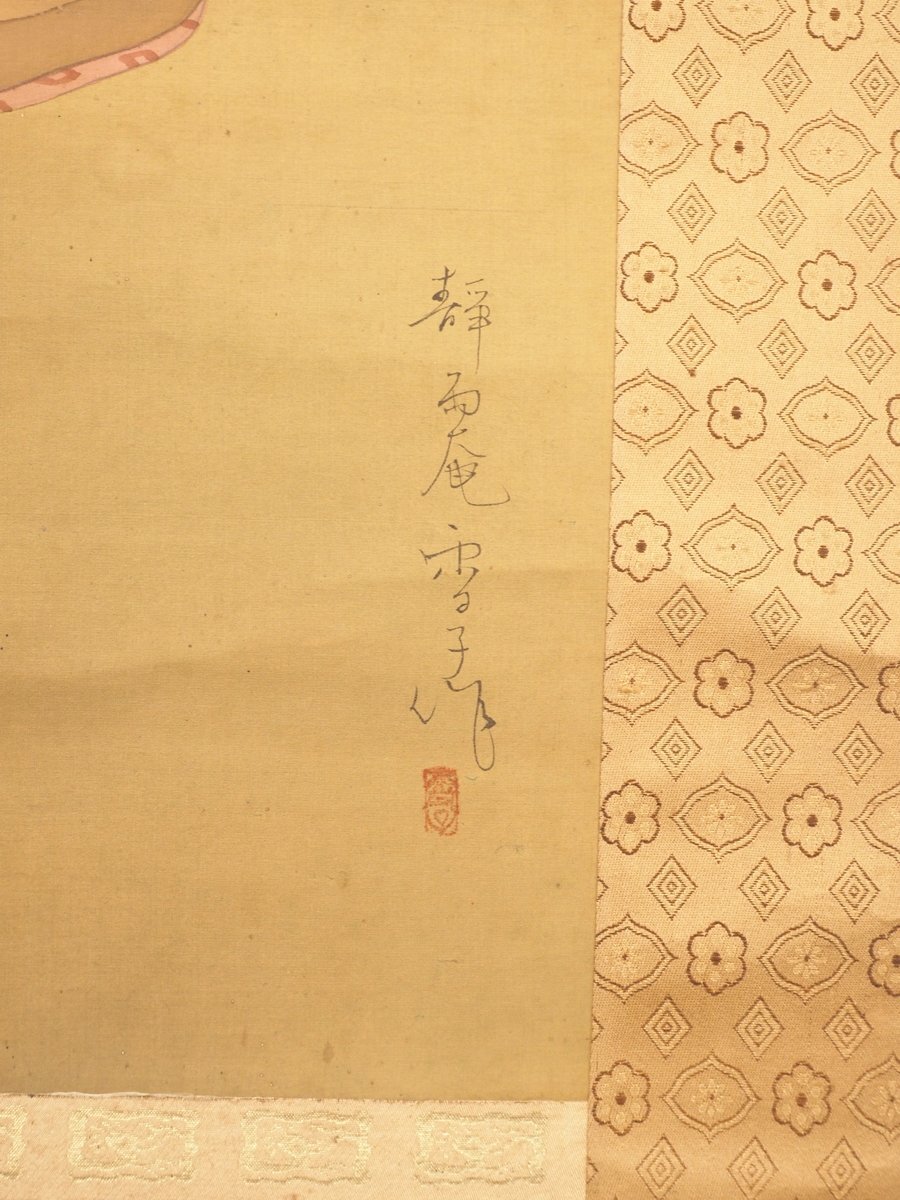 靜雨庵雪子作